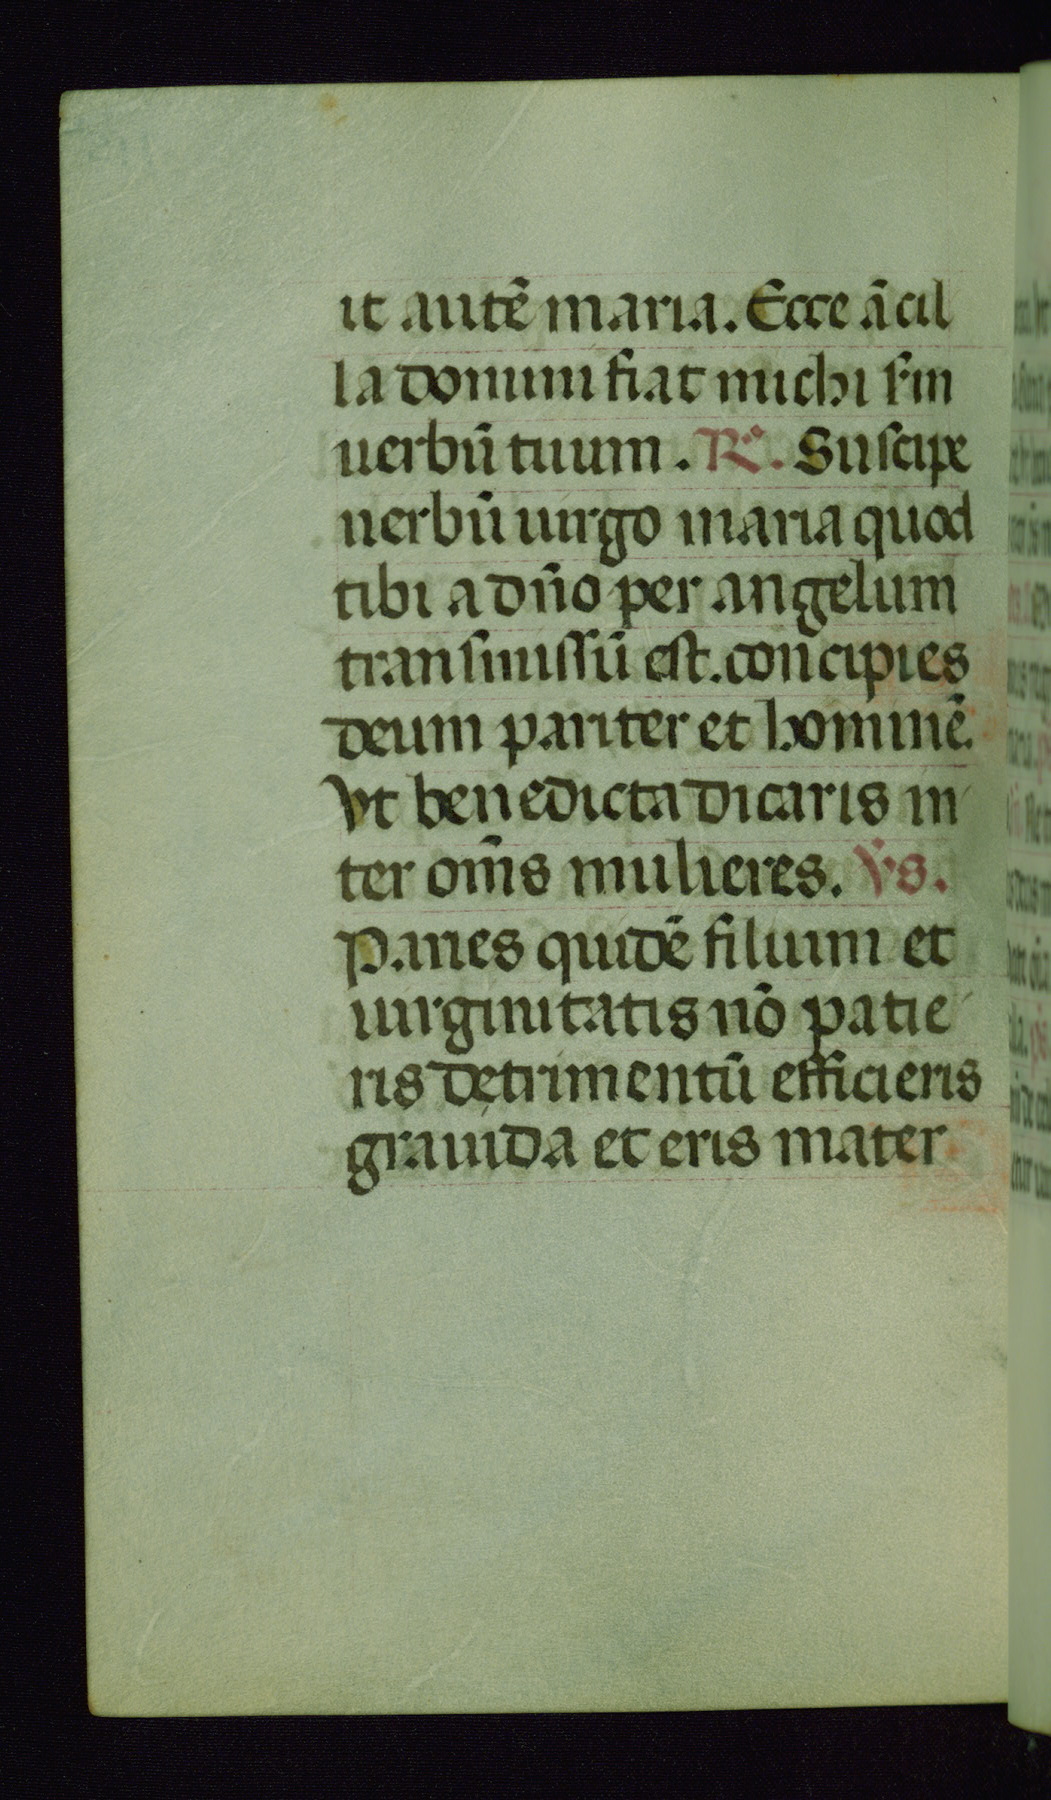 it autē maria. Ecce ācil
la domini fiat michi s̄m
uerbū tuum. R̊. Suscipe
uerbū uirgo maria quod
tibi a dn̄o per angelum
transmissū est. con̄cipies
deum pariter et hominē.
Vt benedicta dicaris in
ter om̄s mulieres. Vs.
Paries quidē filium et
uirginitatis nō patie
ris detrimentū efficieris
grauida et eris mater